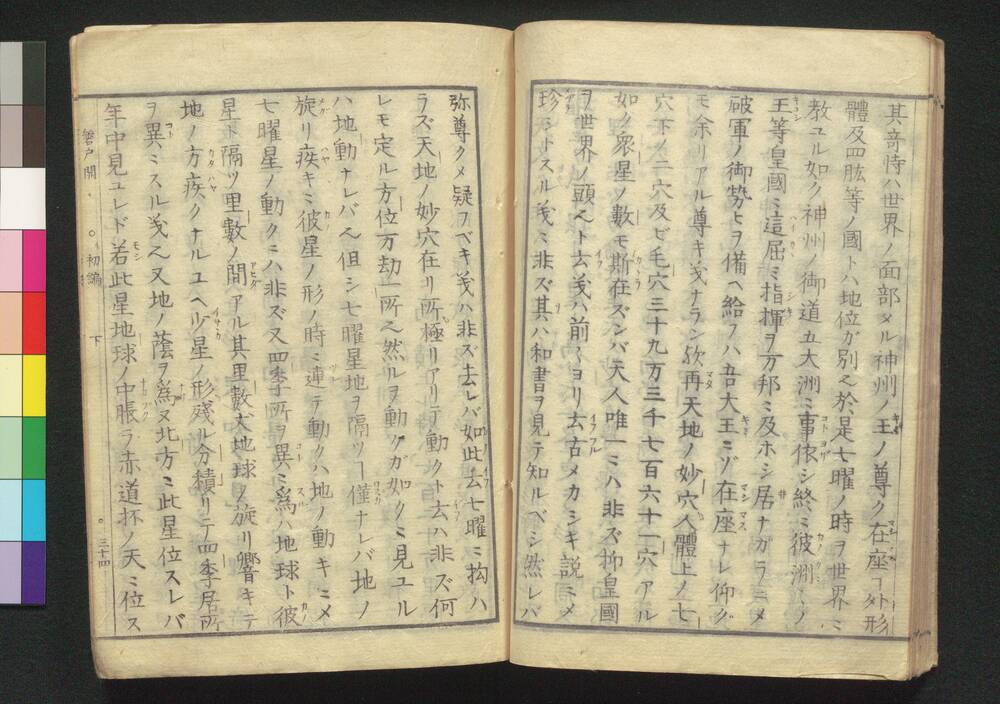 其奇恃ハ世界ノ面部メル神州ノ王ノ尊ク在座ヿ外形
體及四肱等ノ國トハ地位ガ別ヘ於是七曜ノ時ヲ世界ミ
教ユル如ク神州ノ御道五大洲ミ事依シ終ミ彼洲ミノ
王等皇國ミ這屈ミ指揮ヲ万邦ミ及ホシ居ナガラミメ
破軍ノ御勢ヒヲ備ヘ給フハ吾大王ニゾ在座ナレ仰グ
モ余リアル尊キ義ナラン欤再天地ノ妙穴人體上ノ七
穴下ノ二穴及ビ毛穴三十九万三千七百六十一穴アル
如ク衆星ノ數モ斯在ズンバ天人唯一ミハ非ズ抑皇國
ヲ世界ノ頭ヘト云義ハ前ミヨリ云古メカシキ説ミメ
珍シトスル義ミ非ズ其ハ和書ヲ見テ知ルベシ然レバ
弥尊クメ疑フベキ義ハ非ズ去レバ如此云七曜ミ拘ハ
ラズ天地ノ妙穴在リ所極リアリテ動クト云ハ非ズ何
レモ定ル方位万劫一所ヘ然ルヲ動クガ如クミ見ユル
ハ地動ナレバヘ但シ七曜星地ヲ隔ツヿ僅ナレバ地ノ
旋リ疾キミ彼星ノ形ノ時ミ連テ動クハ地ノ動キミメ
七曜星ノ動クミハ非ズ又四季所ヲ異ミ爲ハ地球ト彼
星ト隔ツ里數ノ間アル其里數大地球ノ旋リ響キテ
地ノ方疾クナルユヘ少星ノ形殘ル分積リテ四季居所
ヲ異ミスル義ヘ又地ノ蔭ヲ爲又北方ミ此星位スレバ
年中見ユレド若此星地球ノ中脹ラ赤道抔ノ天ミ位ス
磐戸開 初編 下 三十四